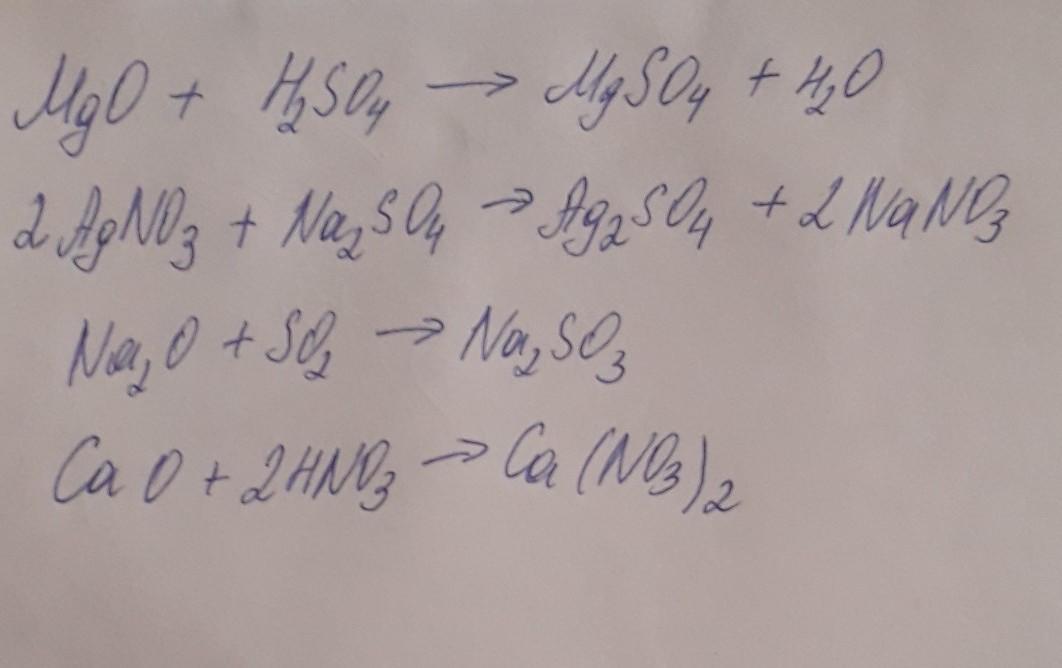 MgO + H₂SO₄ → MgSO₄ + H₂O
2AgNO₃ + Na₂SO₄ → Ag₂SO₄ + 2NaNO₃
Na₂O + SO₂ → Na₂SO₃
CaO + 2HNO₃ → Ca(NO₃)₂